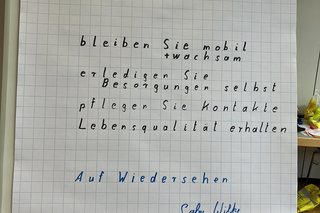 bleiben Sie mobil
+ wachsam
erledigen Sie
Besorgungen selbst
pflegen Sie Kontakte
Lebensqualität erhalten
Auf Wiedersehen